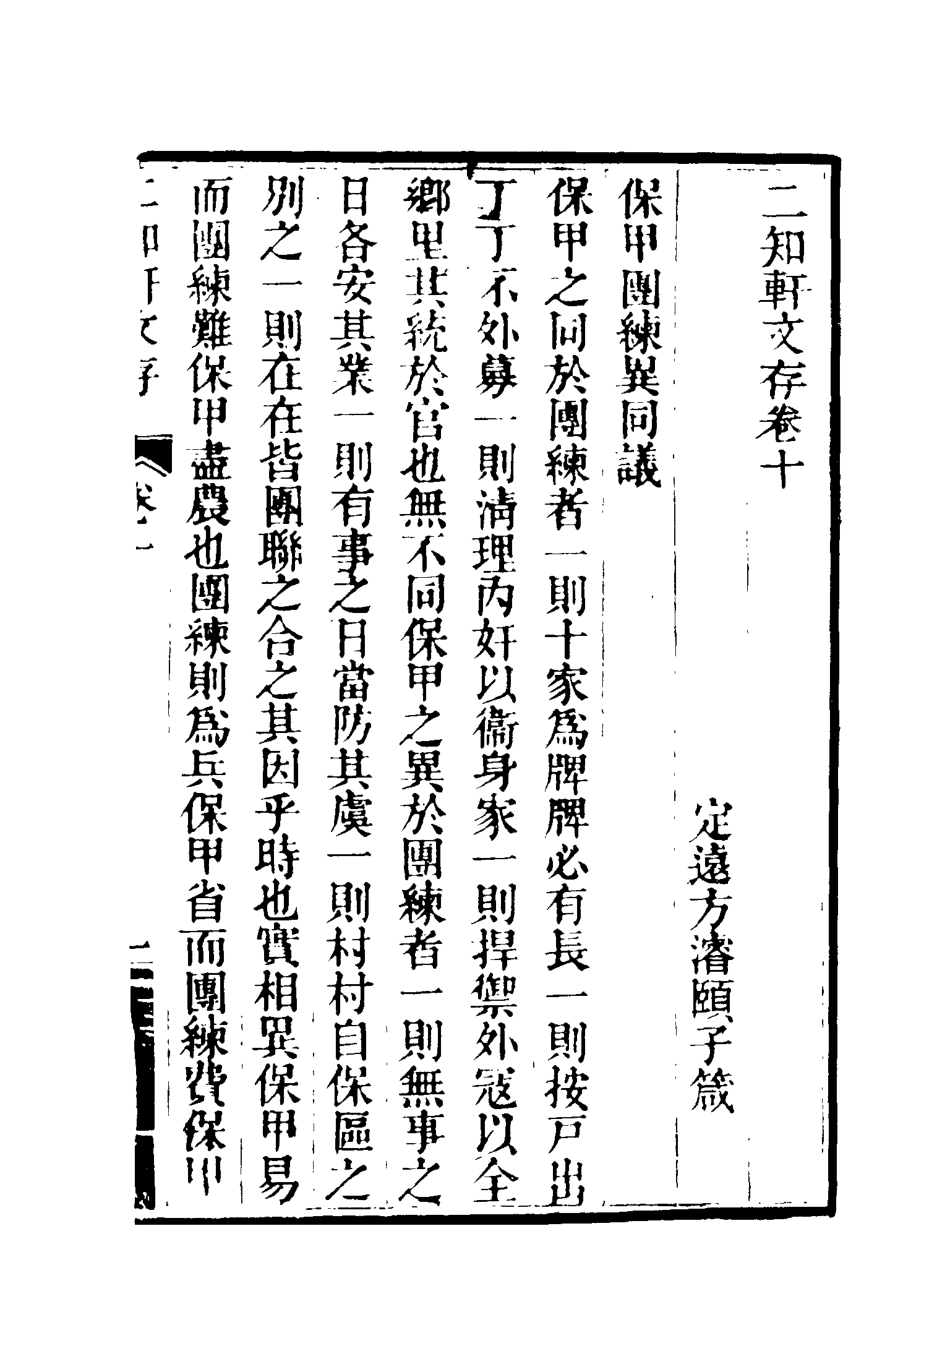 二知軒文存卷十
定遠方濬頤子箴
保甲團練異同議
保甲之同於團練者一則十家爲牌牌必有長一則按戸出
丁丁不外募一則淸理內奸以衞身家一則捍禦外冦以全
鄉里其統於官也無不同保甲之異於團練者一則無事之
日各安其業一則有事之日當防其虞一則村村自保區之
別之一則在在皆團聯之合之其因乎時也實相異保甲易
而團練難保甲盡農也團練則爲兵保甲省而團練費保甲
二知軒文存